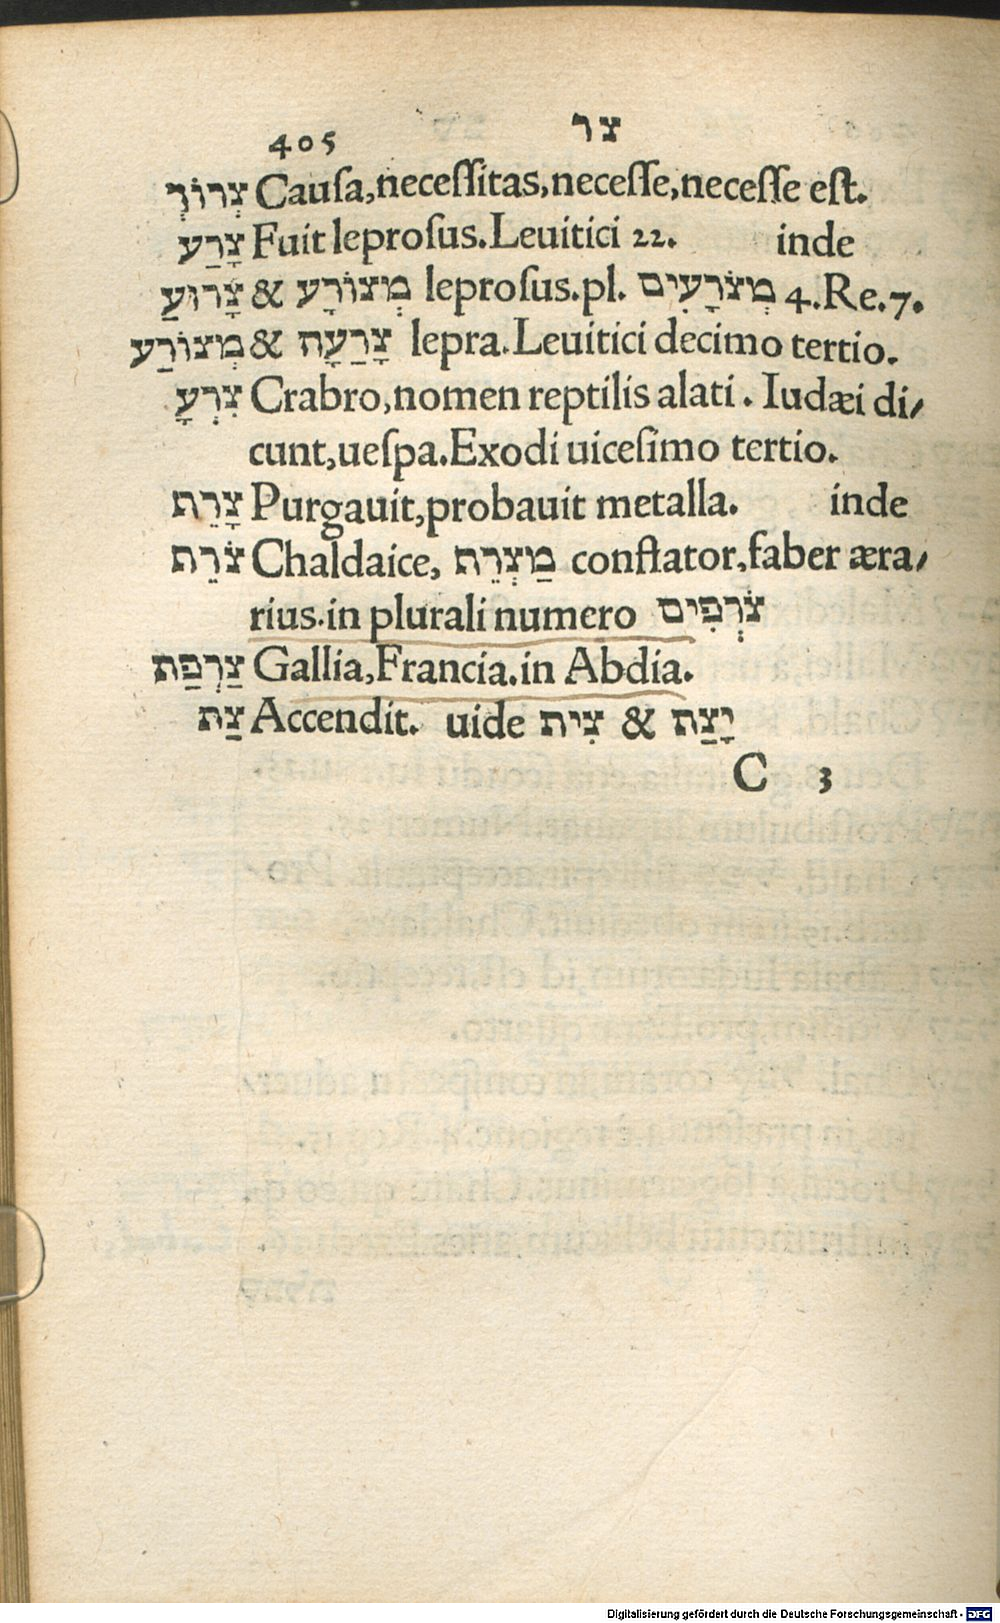 405 צר
צְרוֹךְ Cauſa,neceſſitas,neceſſe,neceſſe eſt.
צָרַע Fuit leproſus.Leuitici 22. inde
צָרוּעַ & מְצוֹרָע leproſus.pl. מְצֹרָעִים 4.Re.7.
מְצוֹרַע & צָרַעָת lepra.Leuitici decimo tertio.
צִרְעָ Crabro,nomen reptilis alati. Iudæi di⸗
cunt,ueſpa.Exodi uiceſimo tertio.
צָרֵת Purgauit,probauit metalla. inde
צֹרֵת Chaldaice, מַצְרֵת conflator,faber æra⸗
rius.in plurali numero צֹרְפִים
צַרְפַת Gallia,Francia.in Abdia.
צַת Accendit. uide צִית & יָצַת
C 3
Digitalisierung gefördert durch die Deutsche Forschungsgemeinschaft - DFG